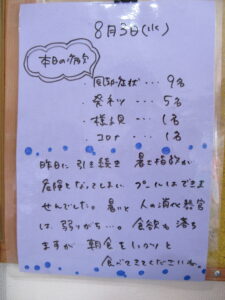 8月3日(火)
本日の病欠
・風邪症状・・・9名
・発ネツ・・・5名
・様子見・・・1名
・コロナ・・・1名
昨日に引き続き 暑さ指数が
危険となってしまい プールはできま
せんでした。暑いと 人の消化器官
は、弱りがち…。食欲も落ち
ますが 朝食をしっかりと
食べてきてくださいね。